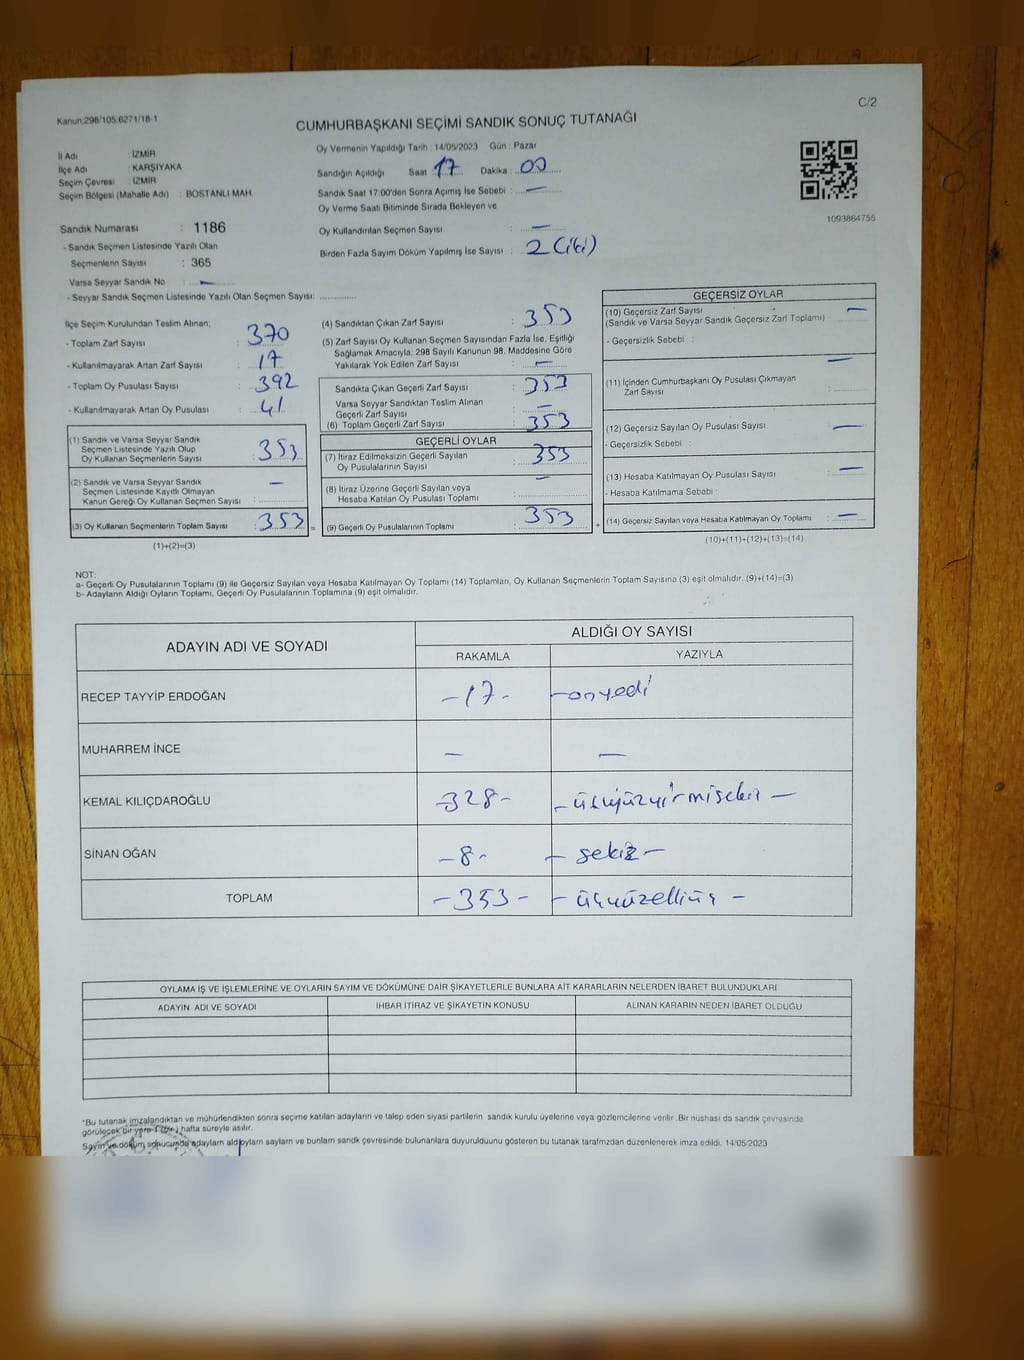 C/2
Kanun:298/105.6271/18-1
CUMHURBAŞKANI SEÇİMİ SANDIK SONUÇ TUTANAĞI
İl Adı : İZMİR
İlçe Adı : KARŞIYAKA
Seçim Çevresi : İZMİR
Seçim Bölgesi (Mahalle Adı) : BOSTANLI MAH.
Sandık Numarası : 1186
- Sandık Seçmen Listesinde Yazılı Olan
Seçmenlerin Sayısı : 365
Varsa Seyyar Sandık No : —
- Seyyar Sandık Seçmen Listesinde Yazılı Olan Seçmen Sayısı: ............
Oy Vermenin Yapıldığı Tarih : 14/05/2023 Gün : Pazar
Sandığın Açıldığı Saat : 17 Dakika : 00
Sandık Saat 17:00'den Sonra Açımış İse Sebebi : —
Oy Verme Saati Bitiminde Sırada Bekleyen ve
Oy Kullandırılan Seçmen Sayısı : —
Birden Fazla Sayım Döküm Yapılmış İse Sayısı : 2 (iki)
1093864755
İlçe Seçim Kurulundan Teslim Alınan;
- Toplam Zarf Sayısı : 370
- Kullanılmayarak Artan Zarf Sayısı : 17
- Toplam Oy Pusulası Sayısı : 392
- Kullanılmayarak Artan Oy Pusulası : 41
(1) Sandık ve Varsa Seyyar Sandık
Seçmen Listesinde Yazılı Olup
Oy Kullanan Seçmenlerin Sayısı : 353
(2) Sandık ve Varsa Seyyar Sandık
Seçmen Listesinde Kayıtlı Olmayan
Kanun Gereği Oy Kullanan Seçmen Sayısı : —
(3) Oy Kullanan Seçmenlerin Toplam Sayısı : 353 =
(1)+(2)=(3)
(4) Sandıktan Çıkan Zarf Sayısı : 353
(5) Zarf Sayısı Oy Kullanan Seçmen Sayısından Fazla İse, Eşitliği
Sağlamak Amacıyla; 298 Sayılı Kanunun 98. Maddesine Göre
Yakılarak Yok Edilen Zarf Sayısı : —
Sandıkta Çıkan Geçerli Zarf Sayısı : 353
Varsa Seyyar Sandıktan Teslim Alınan
Geçerli Zarf Sayısı : —
(6) Toplam Geçerli Zarf Sayısı : 353
GEÇERLİ OYLAR
(7) İtiraz Edilmeksizin Geçerli Sayılan
Oy Pusulalarının Sayısı : 353
(8) İtiraz Üzerine Geçerli Sayılan veya
Hesaba Katılan Oy Pusulası Toplamı : —
(9) Geçerli Oy Pusulalarının Toplamı : 353 +
GEÇERSİZ OYLAR
(10) Geçersiz Zarf Sayısı : —
(Sandık ve Varsa Seyyar Sandık Geçersiz Zarf Toplamı)
- Geçersizlik Sebebi :
(11) İçinden Cumhurbaşkanı Oy Pusulası Çıkmayan
Zarf Sayısı : —
(12) Geçersiz Sayılan Oy Pusulası Sayısı : —
- Geçersizlik Sebebi :
(13) Hesaba Katılmayan Oy Pusulası Sayısı : —
- Hesaba Katılmama Sebebi :
(14) Geçersiz Sayılan veya Hesaba Katılmayan Oy Toplamı : —
(10)+(11)+(12)+(13)=(14)
NOT:
a- Geçerli Oy Pusulalarının Toplamı (9) ile Geçersiz Sayılan veya Hesaba Katılmayan Oy Toplamı (14) Toplamları, Oy Kullanan Seçmenlerin Toplam Sayısına (3) eşit olmalıdır. (9)+(14)=(3)
b- Adayların Aldığı Oyların Toplamı, Geçerli Oy Pusulalarının Toplamına (9) eşit olmalıdır.
ADAYIN ADI VE SOYADI
ALDIĞI OY SAYISI
RAKAMLA YAZIYLA
RECEP TAYYİP ERDOĞAN -17- -onyedi
MUHARREM İNCE — —
KEMAL KILIÇDAROĞLU -328- -üçyüzyirmisekiz-
SİNAN OĞAN -8- -sekiz-
TOPLAM -353- -üçyüzelliüç-
OYLAMA İŞ VE İŞLEMLERİNE VE OYLARIN SAYIM VE DÖKÜMÜNE DAİR ŞİKAYETLERLE BUNLARA AİT KARARLARIN NELERDEN İBARET BULUNDUKLARI
ADAYIN ADI VE SOYADI İHBAR İTİRAZ VE ŞİKAYETİN KONUSU ALINAN KARARIN NEDEN İBARET OLDUĞU
*Bu tutanak imzalandıktan ve mühürlendikten sonra seçime katılan adayların ve talep eden siyasi partilerin sandık kurulu üyelerine veya gözlemcilerine verilir. Bir nüshası da sandık çevresinde
görülecek bir yere 1 (bir) hafta süreyle asılır.
Sayım ve döküm sonucunda adayların aldı oyların sayların ve bunların sandk çevresinde bulunanlara duyurulduunu gösteren bu tutanak tarafmzdan düzenlenerek imza edildi. 14/05/2023